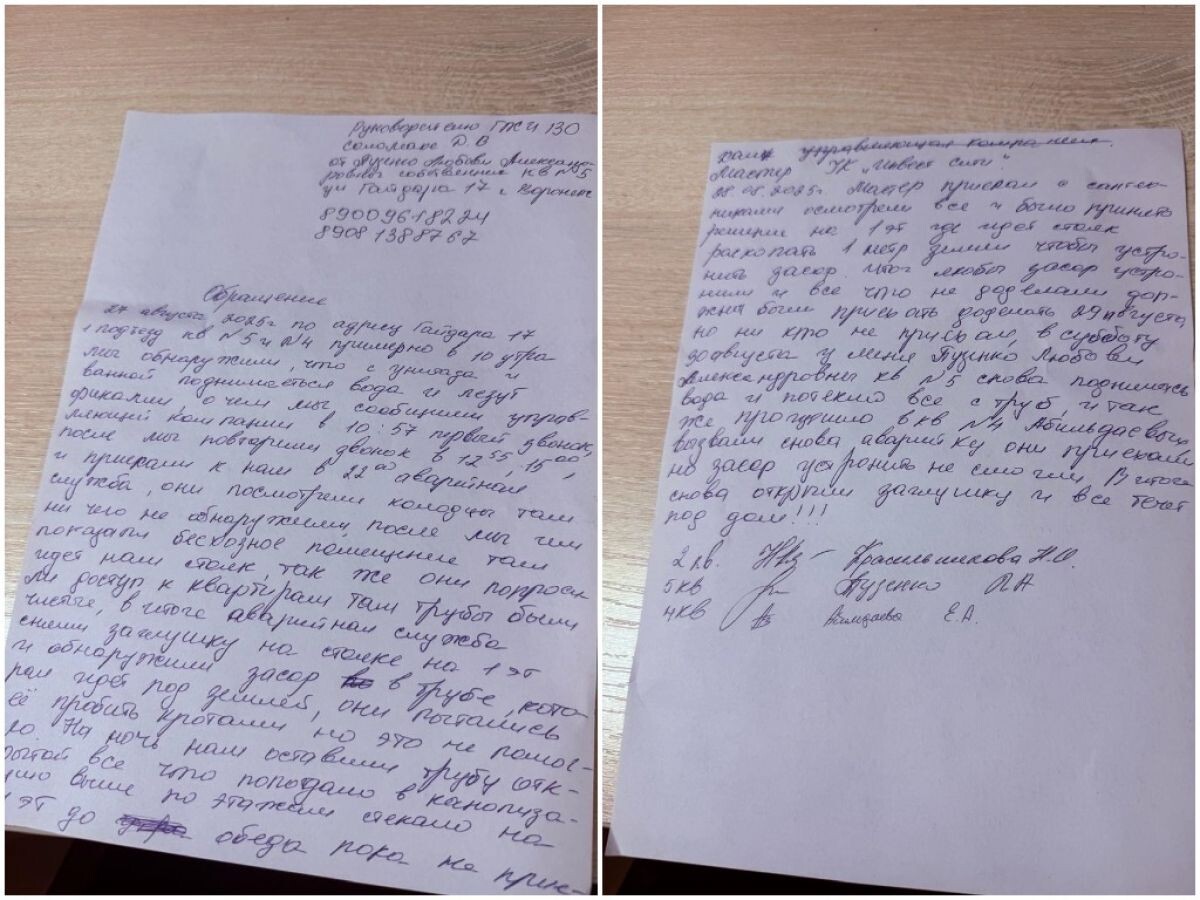 Руководителю ГЖИ ВО
Соломахе Д.В
от Пузенко Любови Александ-
ровны собственник кв №5
ул Гайдара 17 г. Воронеж
89009618224
89081388767
Обращение
27 августа 2025г по адресу Гайдара 17
1 подъезд кв №5 и №4 примерно в 10 утра
мы обнаружили, что с унитаза и
ванной поднимается вода и лезут
фикалии о чем мы сообщили управ-
ляющей компании в 10:57 первый звонок,
после мы повторили звонок в 12 55, 15 00,
и приехали к нам в 22 00 аварийная
служба, они посмотрели колодцы там
ни чего не обнаружили, после мы им
показали бесхозное помещение там
идет наш стояк, так же они попроси
ли доступ к квартирам там трубы были
чистые, в итоге аварийная служба
сняли заглушку на стояке на 1 эт
и обнаружили засор в трубе, кото-
рая идет под землей, они пытались
её пробить кротами но это не помог-
ло. На ночь нам оставили трубу отк-
рытой все что попадало в канализа-
цию выше по этажам стекало на
1 эт до обеда пока не прие-
хали управляющая компания.
Мастер УК "Инвест Сити"
28.08.2025г. Мастер приехал с санте-
никами осмотрели все и было принято
решение на 1 эт где идет стояк
раскопать 1 метр земли чтобы устро-
нить засор. Итог любы засор устро-
нили и все что не доделали дол-
жны были приехать доделать 29 августа,
но ни кто не приехал, в субботу
30 августа у меня Пузенко Любови
Александровны кв №5 снова поднялась
вода и потекло все с труб, и так
же прогудило в кв №4 Абильдаевых
вызвали снова аварийку они приехали
но засор устронить не смогли. В итоге
снова открыли заглушку и все течет
под дом!!!
2 кв. Красильникова Н.О.
5 кв Пузенко Л А
4 кв Е.А.